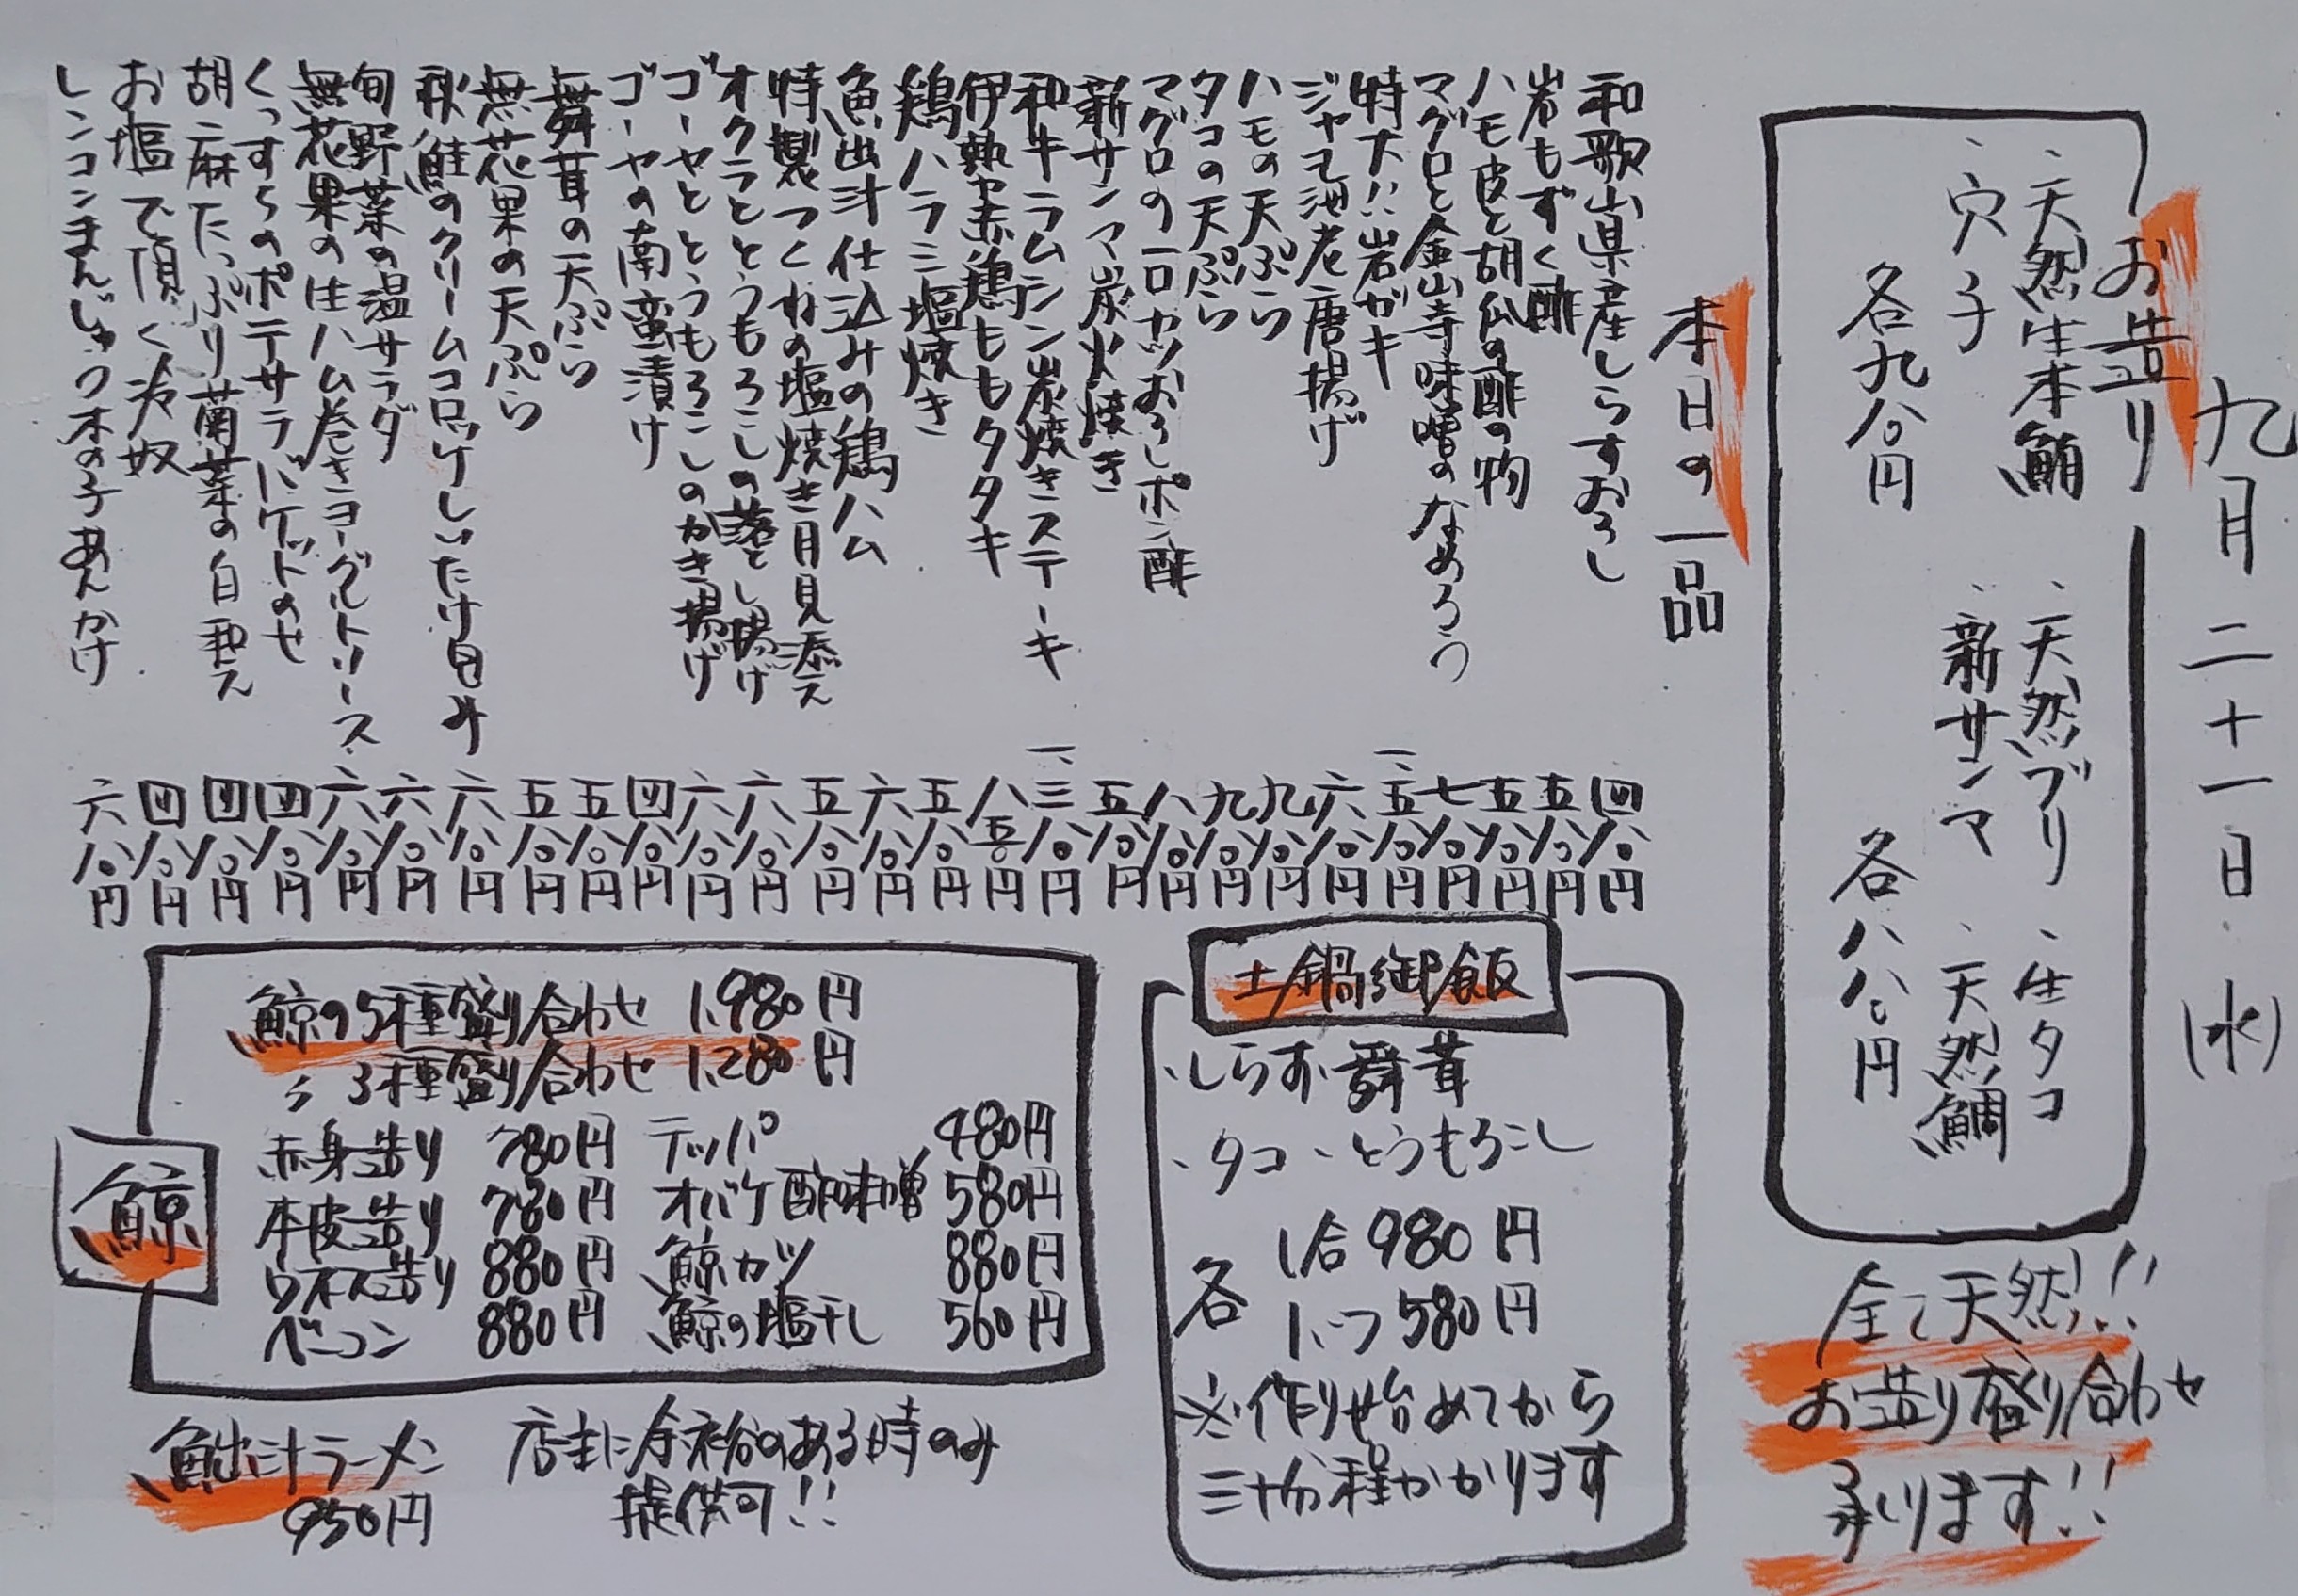 九月二十一日(水)
お造り
、天然生本鮪 、天然ブリ 、生タコ
、穴子 、新サンマ 、天然鯛
各九八〇円 各八八〇円
全て天然!!
お造り盛り合わせ
承ります!!
本日の一品
和歌山県産しらすおろし 四八〇円
岩もずく酢 五八〇円
ハモ皮と胡瓜の酢の物 五八〇円
マグロと金山寺味噌のなめろう 七八〇円
特大!!岩ガキ 一、五八〇円
ジャコ海老唐揚げ 六八〇円
ハモの天ぷら 九八〇円
タコの天ぷら 九八〇円
マグロの一口カツおろしポン酢 八八〇円
新サンマ炭火焼き 五八〇円
和牛ラムシン炭焼きステーキ 一、三八〇円
伊勢赤鶏ももタタキ 八五〇円
鶏ハラミ塩焼き 五八〇円
魚出汁仕込みの鶏ハム 六八〇円
特製つくねの塩焼き月見添え 五八〇円
オクラととうもろこしの落とし揚げ 六八〇円
ゴーヤととうもろこしのかき揚げ 六八〇円
ゴーヤの南蛮漬け 四八〇円
舞茸の天ぷら 五八〇円
無花果の天ぷら 五八〇円
秋鮭のクリームコロッケしいたけ包み 六八〇円
旬野菜の温サラダ 六八〇円
無花果の生ハム巻きヨーグルトソース 六八〇円
くっすらのポテサラバゲットのせ 四八〇円
胡麻たっぷり菊菜の白和え 四八〇円
お塩で頂く冷奴 四八〇円
レンコンまんじゅう木の子あんかけ 六八〇円
土鍋御飯
、しらす、舞茸
、タコ、とうもろこし
各 1合 980円
1.5つ 580円
※作り始めてから
三十分程かかります
鯨
鯨の5種盛り合わせ 1,980円
〃 3種盛り合わせ 1,280円
赤身造り 780円 テッパ 480円
本皮造り 780円 オバケ酢味噌 580円
ウネス造り 880円 鯨カツ 880円
ベーコン 880円 鯨の塩干し 560円
魚出汁ラーメン
950円
店主に余裕のある時のみ
提供可!!